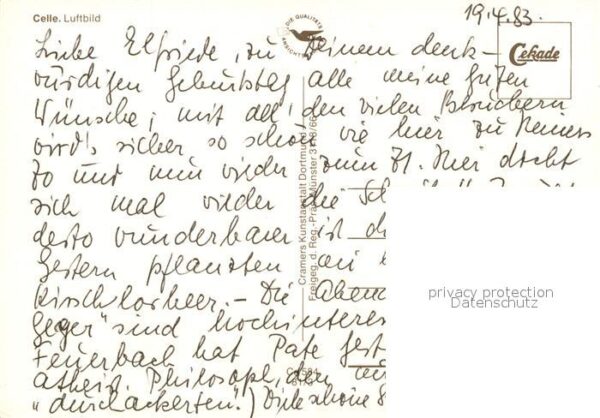 Celle. Luftbild
19.4.83.
DIE QUALITÄTS
ANSICHTS
Cekade
Liebe Elfriede, zu Deinem denk-
würdigen Geburtstag alle meine guten
Wünsche; mit all' den vielen Besuchern
wird's sicher so schön wie hier zu Reiners
70 und nun wieder zum 71. Hier dreht
sich mal wieder die
desto wunderbarer ist
Gestern pflanzten wir
Kirschlorbeer. – Die Abend
sind hochinteres
Feuerbach hat Pate gest
atheist. Philosoph, den
"durchackerten".) Viele schöne
Cramers Kunstanstalt Dortmund
Freigeg. d. Reg.-Präs. Münster
privacy protection
Datenschutz